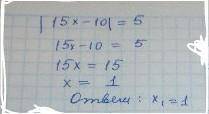 |15x-10| = 5
15x-10 = 5
15x = 15
x = 1
Ответ: x₁=1